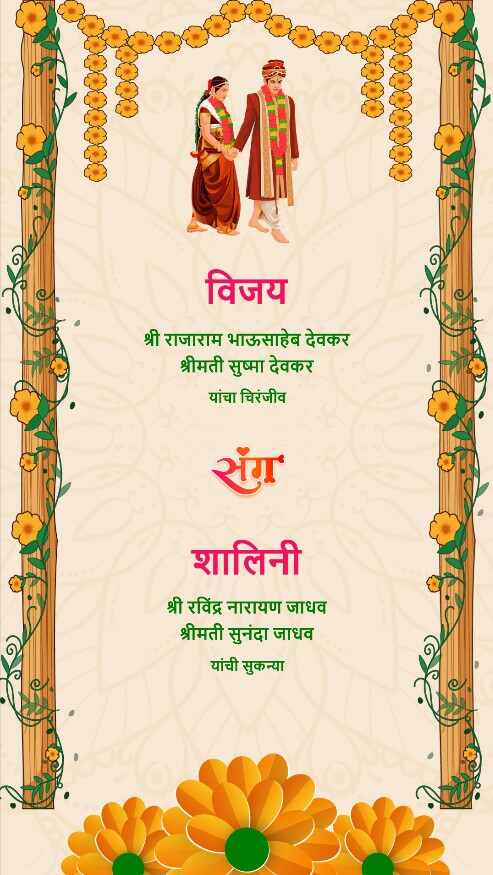 विजय
श्री राजाराम भाऊसाहेब देवकर
श्रीमती सुष्मा देवकर
यांचा चिरंजीव
संग
शालिनी
श्री रविंद्र नारायण जाधव
श्रीमती सुनंदा जाधव
यांची सुकन्या